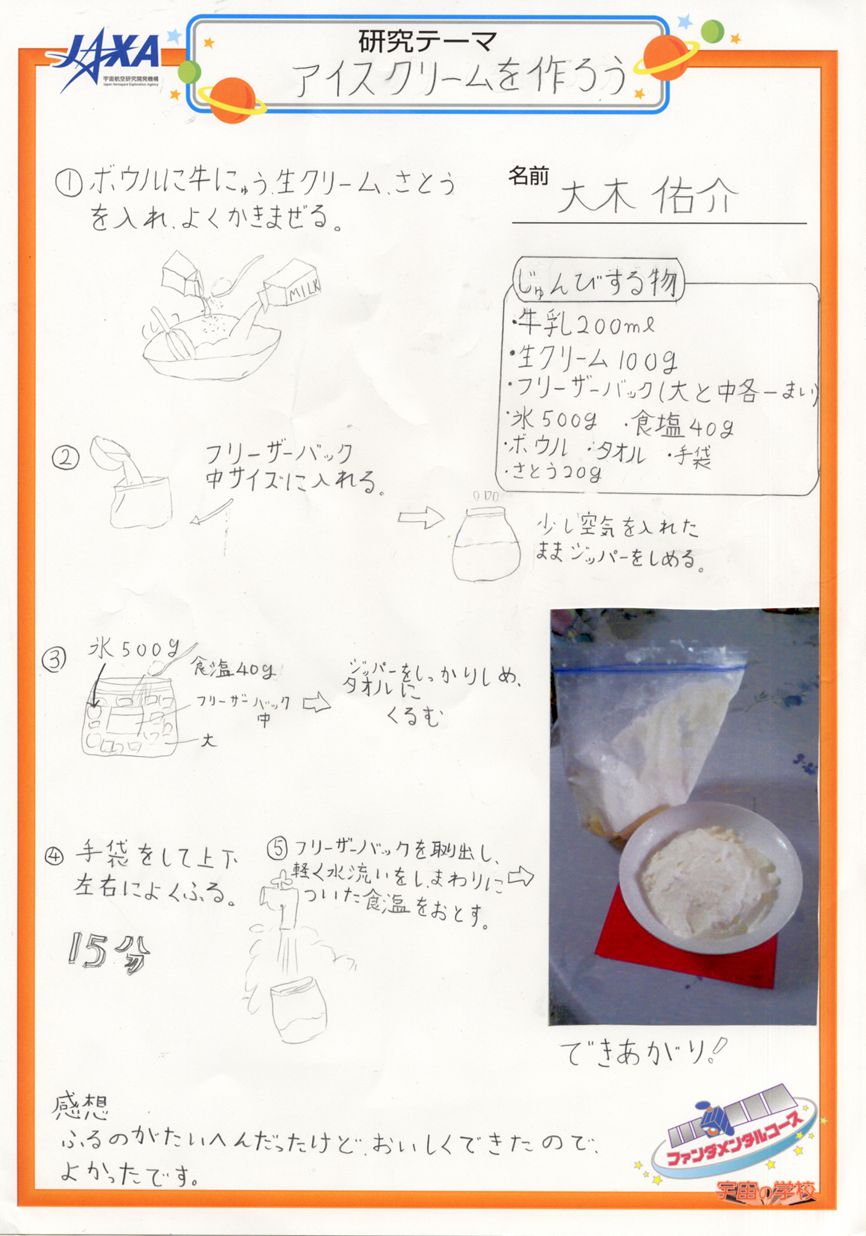 JAXA
宇宙航空研究開発機構
Japan Aerospace Exploration Agency
研究テーマ
アイスクリームを作ろう
名前 大木 佑介
①ボウルに牛にゅう、生クリーム、さとう
を入れ、よくかきまぜる。
MILK
じゅんびする物
・牛乳200ml
・生クリーム100g
・フリーザーバック(大と中各一まい)
・氷500g ・食塩40g
・ボウル ・タオル ・手袋
・さとう20g
②
フリーザーバック
中サイズに入れる。
少し空気を入れた
ままジッパーをしめる。
③
氷500g
食塩40g
フリーザーバック
中
大
ジッパーをしっかりしめ、
タオルに
くるむ
④ 手袋をして上下、
左右によくふる。
15分
⑤フリーザーバックを取り出し、
軽く水流いをし、まわりに
ついた食塩をおとす。
できあがり!
感想
ふるのがたいへんだったけど、おいしくできたので、
よかったです。
ファンダメンタルコース
宇宙の学校